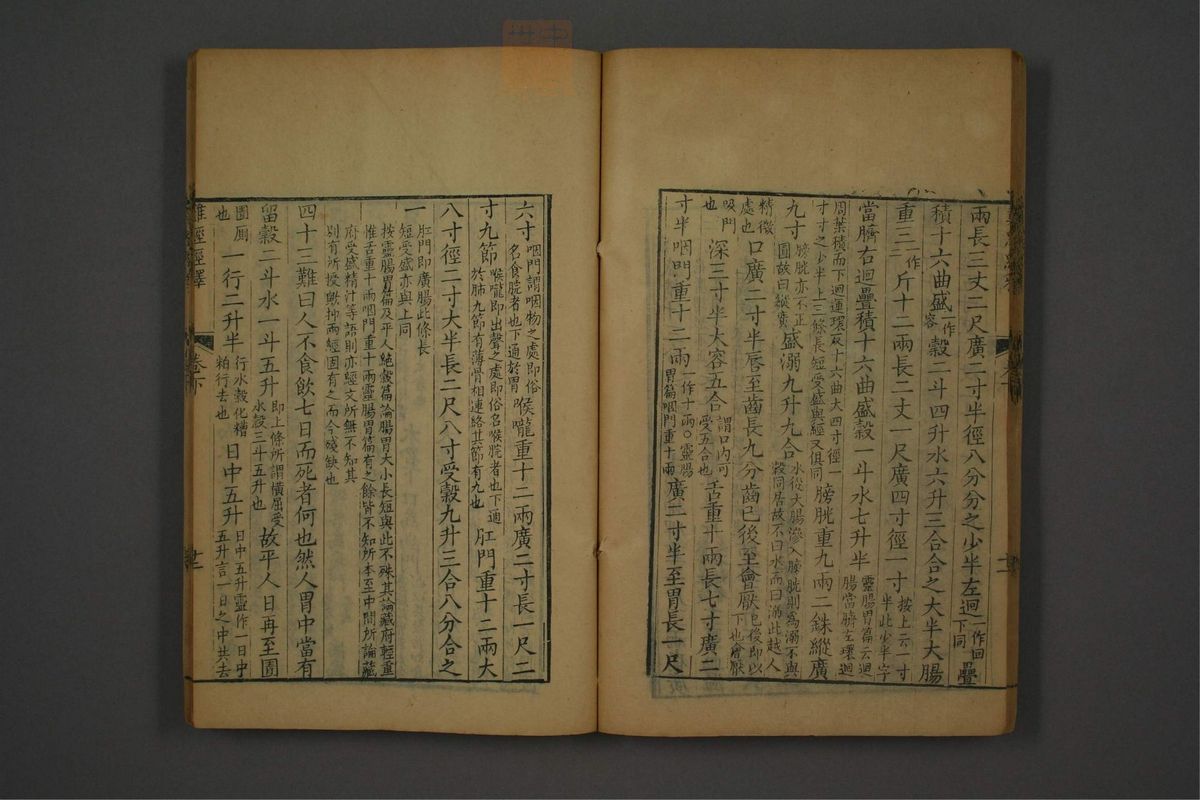 兩長三丈二尺廣二寸半徑八分分之少半左迴一作回下同疊
積十六曲盛一作容穀二斗四升水六升三合合之大半大腸
重三一作二斤十二兩長二丈一尺廣四寸徑一寸按上云一寸半此少半字
當臍右迴疊積十六曲盛穀一斗水七升半靈腸胃篇云迴腸當臍左環迴
周葉積而下迴運環双十六曲大四寸徑一寸寸之少半上三條長短受盛與經又俱同膀胱重九兩二銖縱廣
九寸膀胱亦不正圓故曰縱廣盛溺九升九合水從大腸滲入膀胱則為溺不與穀同居故不曰水而曰溺此越人
精微處也口廣二寸半唇至齒長九分齒已後至會厭已後即以下也會厭
吸門也深三寸半大容五合謂口内可受五合也舌重十兩長七寸廣二
寸半咽門重十二兩一作十兩○靈腸胃篇咽門重十兩廣二寸半至胃長一尺
六寸咽門謂咽物之處即俗名食脘者也下通於胃喉嚨重十二兩廣二寸長一尺二
寸九節喉嚨即出聲之處即俗名喉脘者也下通於肺九節有薄骨相連絡其節有九也肛門重十二兩大
八寸徑二寸大半長二尺八寸受穀九升三合八分合之
一肛門即廣腸此條長短受盛亦與上同
按靈腸胃篇及平人絕穀篇論腸胃大小長短與此不殊其論藏府輕重
惟舌重十兩咽門重十兩靈腸胃篇有之餘皆不知所本至中間所論藏
府受盛精汁等語則亦經文所無不知其
別有所授歟抑兩經固有之而今殘缺也
四十三難曰人不食飲七日而死者何也然人胃中當有
留穀二斗水一斗五升即上條所謂橫屈受水穀三斗五升也故平人日再至圊
圊厠也一行二升半行水穀化糟粕行去也日中五升日中五升靈作一日中五升言一日之中共去
難經經釋 卷下